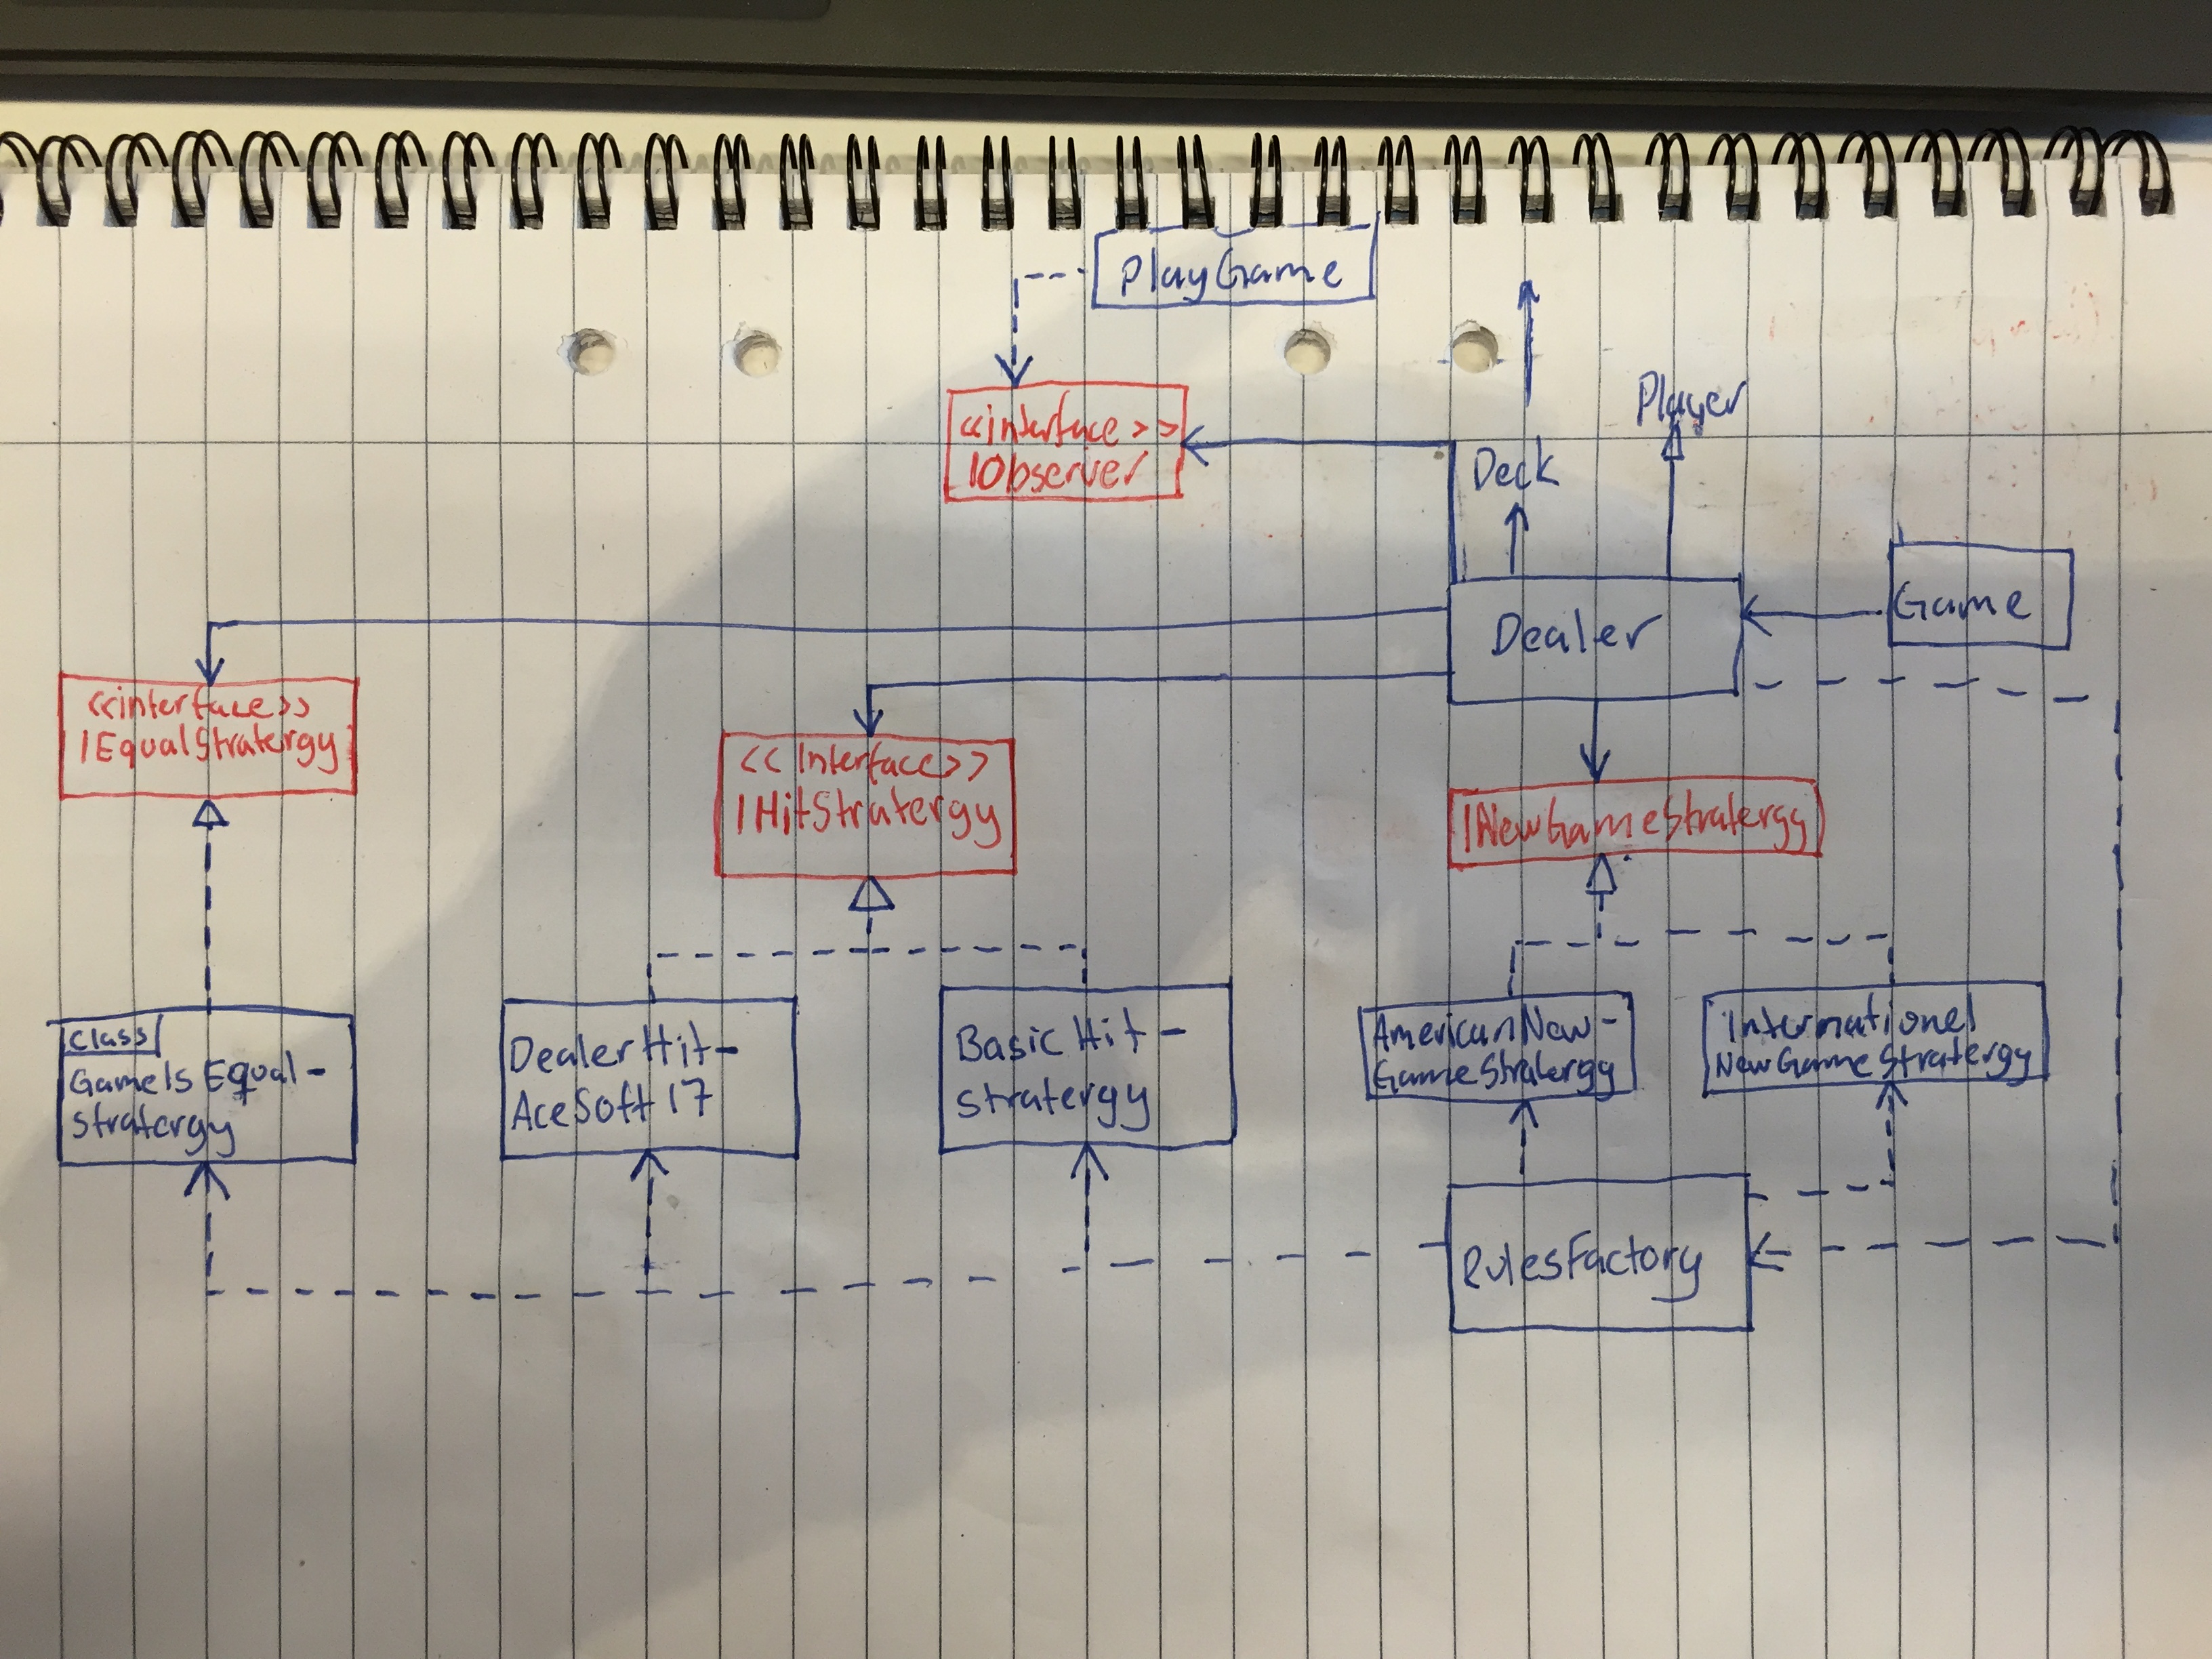 PlayGame
<<interface>>
IObserver
Player
Deck
Game
Dealer
<<interface>>
IEqualStratergy
<<Interface>>
IHitStratergy
INewGameStratergy
class
GameIsEqual-
Stratergy
DealerHit-
AceSoft17
Basic Hit-
Stratergy
AmericanNew-
GameStratergy
International
NewGameStratergy
RulesFactory